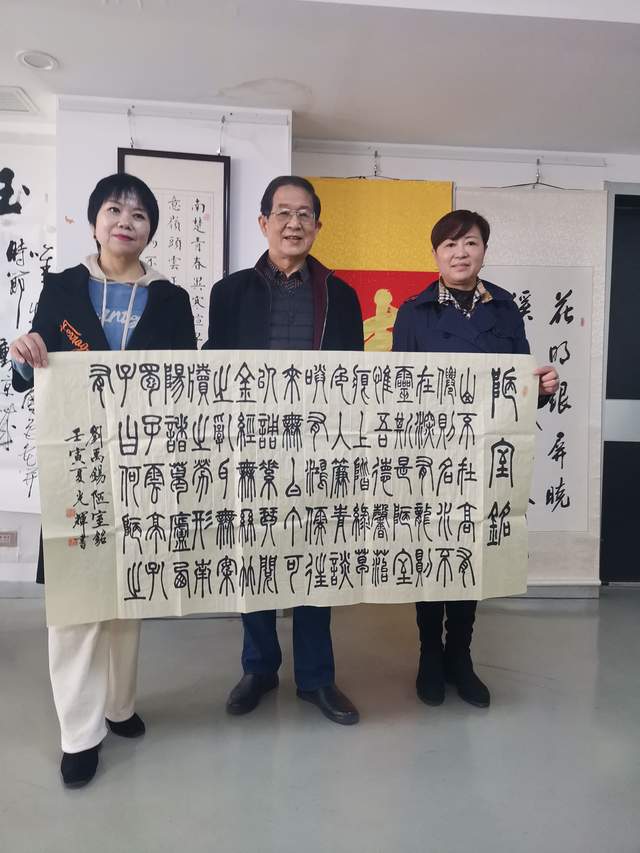 玉
時節
南楚青春
意嶺頭雲
花明銀屏曉
溪
陋室銘
山不在高有
僊則名水不
在深有龍則
靈斯是陋室
惟吾德馨苔
痕上階綠草
色入簾青談
笑有鴻儒往
來無白丁可
以調素琴閱
金經無絲竹
之亂耳無案
牘之勞形南
陽諸葛廬西
蜀子雲亭孔
子曰何陋之
有
劉禹錫陋室銘
壬寅夏光輝書